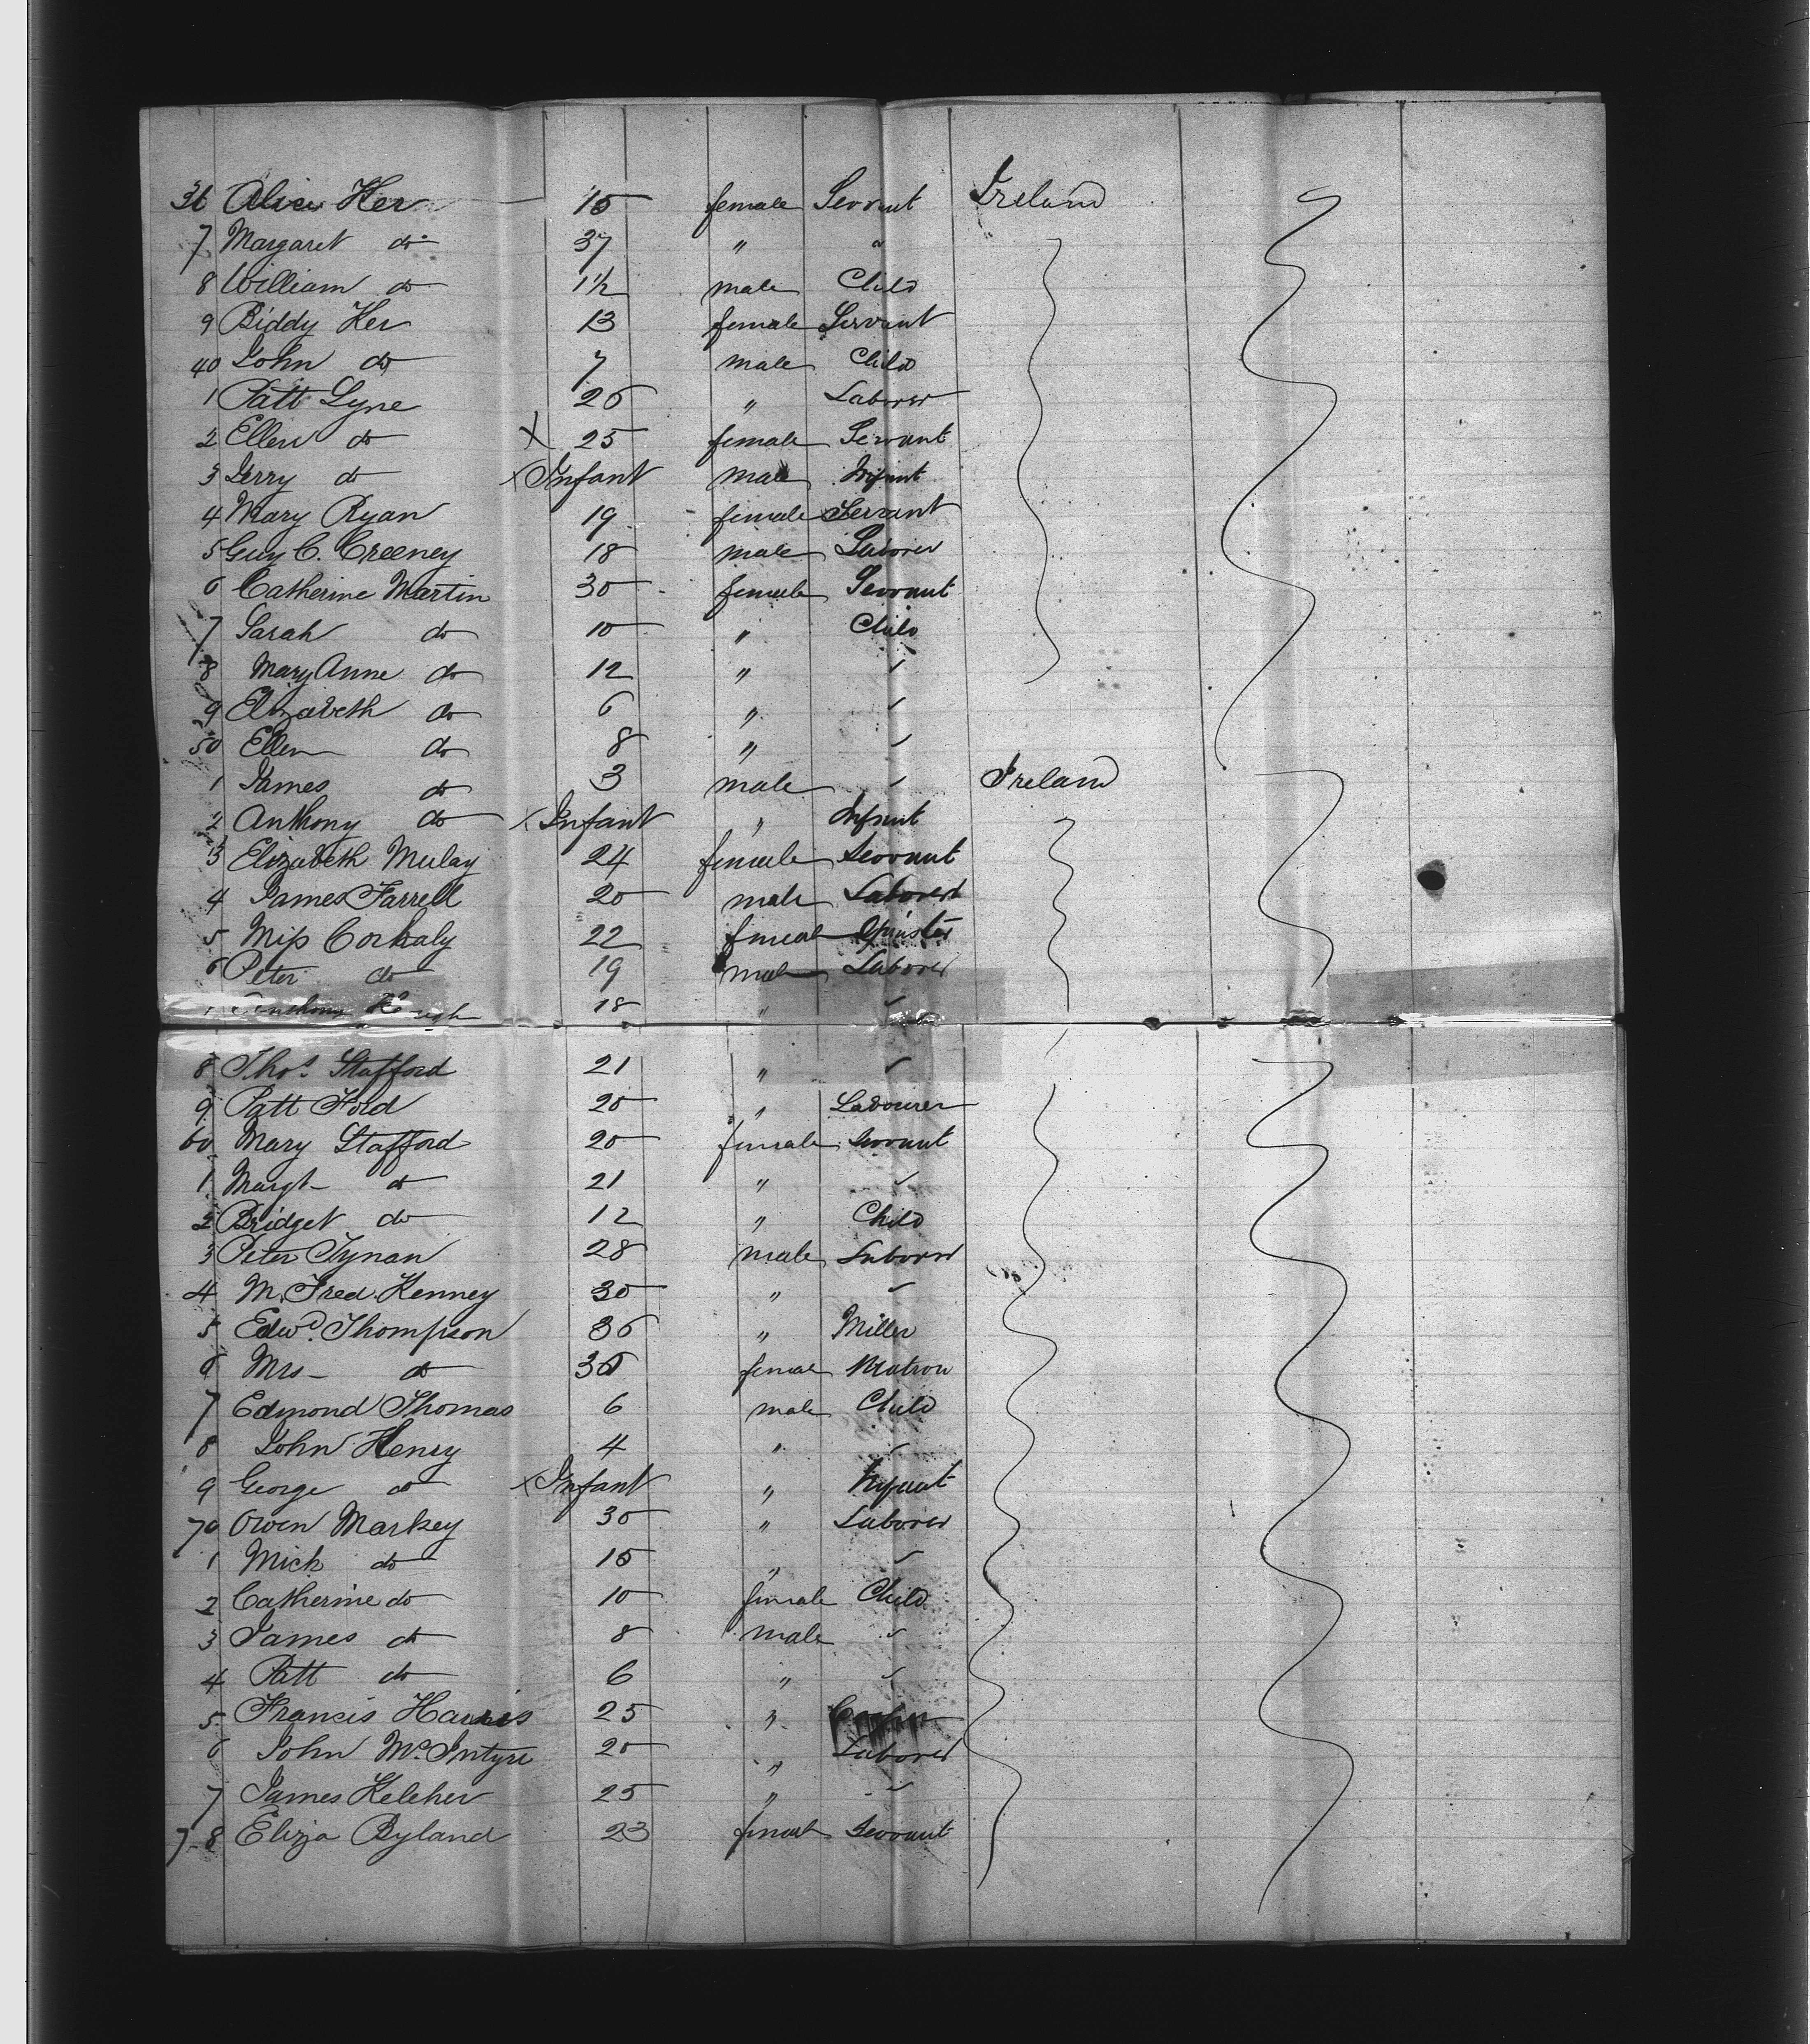 36 Alice Ker 15 female Servant Ireland
7 Margaret do 37 " "
8 William do 1½ male Child
9 Biddy Ker 13 female Servant
40 John do 7 male Child
1 Patt Lyne 26 " Laborer
2 Ellen do X 25 female Servant
3 Jerry do X Infant male Infant
4 Mary Ryan 19 female Servant
5 Guy C. Creeney 18 male Laborer
6 Catherine Martin 30 female Servant
7 Sarah do 10 " Child
8 Mary Anne do 12 " "
9 Elizabeth do 6 " "
50 Ellen do 8 " "
1 James do 3 male " Ireland
2 Anthony do X Infant " Infant
3 Elizabeth Mulay 24 female Servant
4 James Farrell 20 male Laborer
5 Miss Corkaly 22 female Spinster
6 Peter do 19 male Laborer
18 " "
8 Thos. Stafford 21 " "
9 Patt Ford 20 " Labourer
60 Mary Stafford 20 female Servant
1 Margt do 21 " "
2 Bridget do 12 " Child
3 Peter Tynan 28 male Laborer
4 M. Fred. Kenney 30 " "
5 Edwd. Thompson 36 " Miller
6 Mrs do 36 female Matron
7 Edmond Thomas 6 male Child
8 John Henry 4 " "
9 George do X Infant " Infant
70 Owen Markey 30 " Laborer
1 Mick do 15 " "
2 Catherine do 10 female Child
3 James do 8 male "
4 Patt do 6 " "
5 Francis Harris 25 "
6 John McIntyre 20 " Laborer
7 James Keleher 25 " "
78 Eliza Byland 23 female Servant